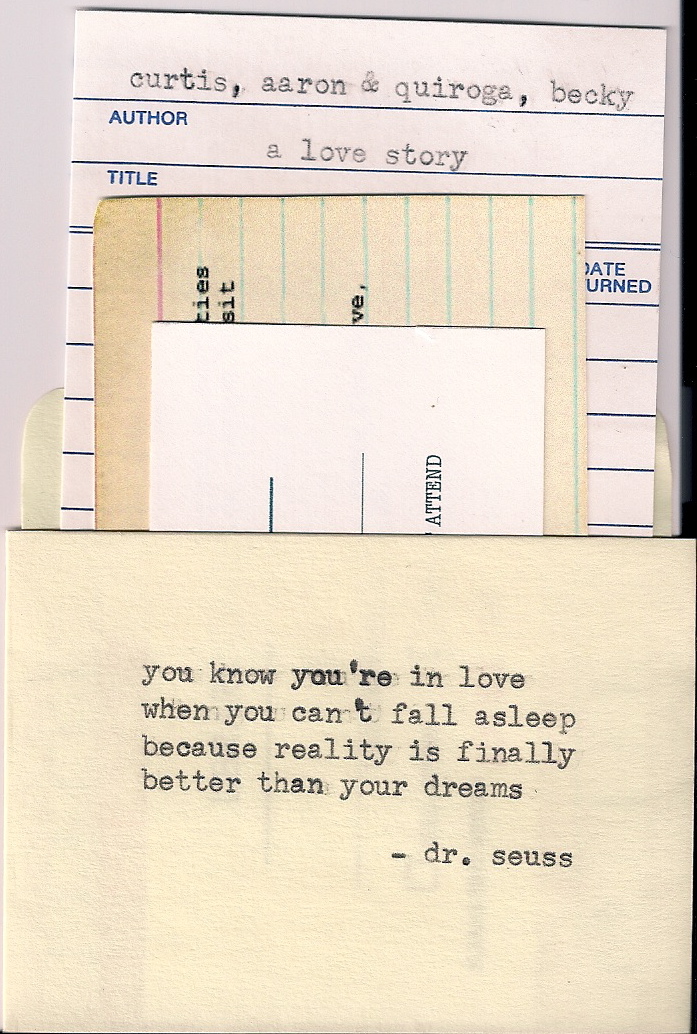 curtis, aaron & quiroga, becky
AUTHOR
a love story
TITLE
DATE
URNED
ties
sit
ve,
ATTEND
you know you're in love
when you can't fall asleep
because reality is finally
better than your dreams
- dr. seuss